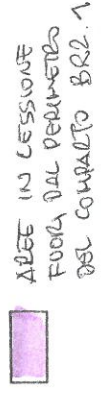 AREE IN CESSIONE
FUORI DAL PERIMETRO
DEL COMPARTO BR2.1